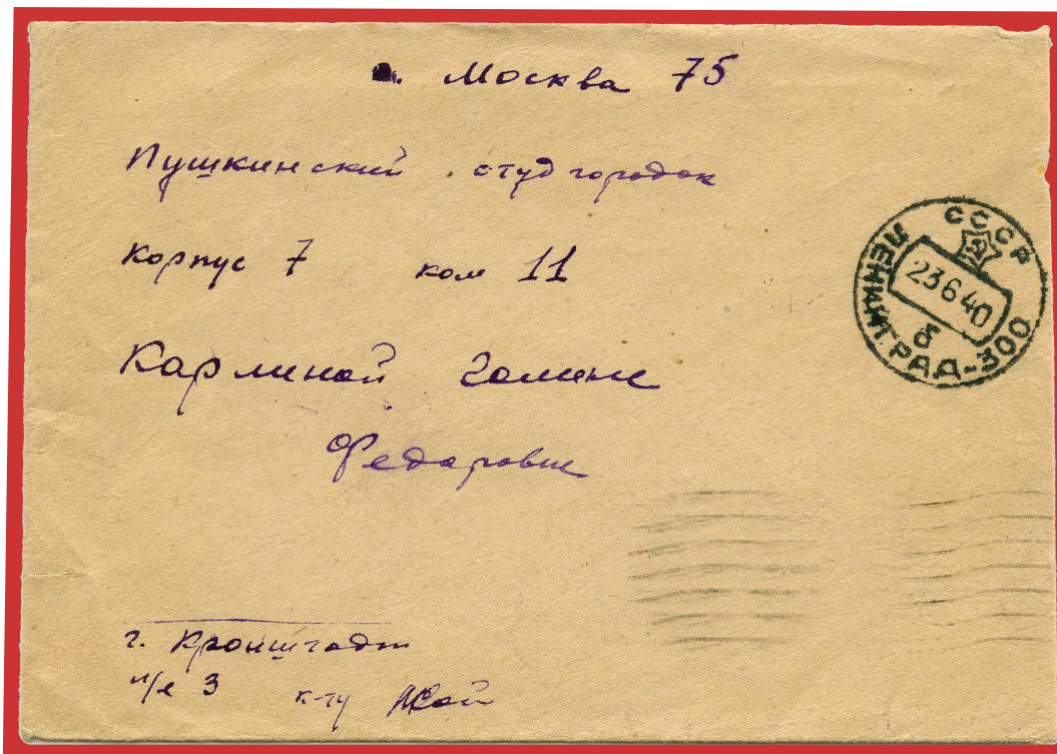 г. Москва 75
Пушкинский студгородок
корпус 7 ком 11
Карлиной Галине
Федоровне
СССР
23 6 40
б
ЛЕНИНГРАД-300
г. Кронштадт
п/я 3 к-ту